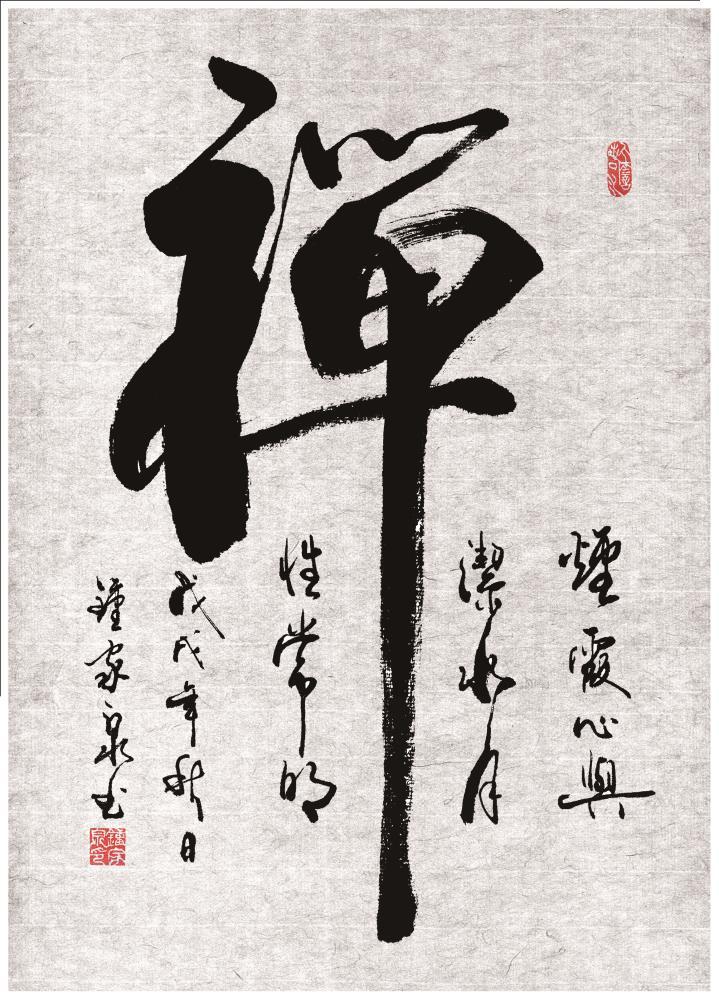 禪
煙霞心與
潔水月
性常明
戊戌年秋日
鍾家泉书
鍾家泉印